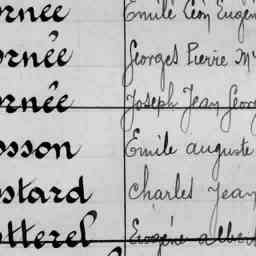 ornée Emile Léon Eugèn
ornée Georges Pierre M
ornée Joseph Jean Georg
osson Emile auguste
ostard Charles Jean
otterel Eugène albert